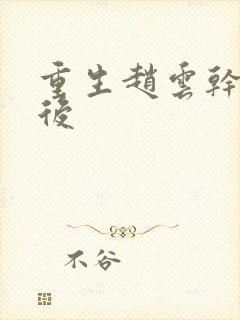 重生趙雲幹
後
不谷